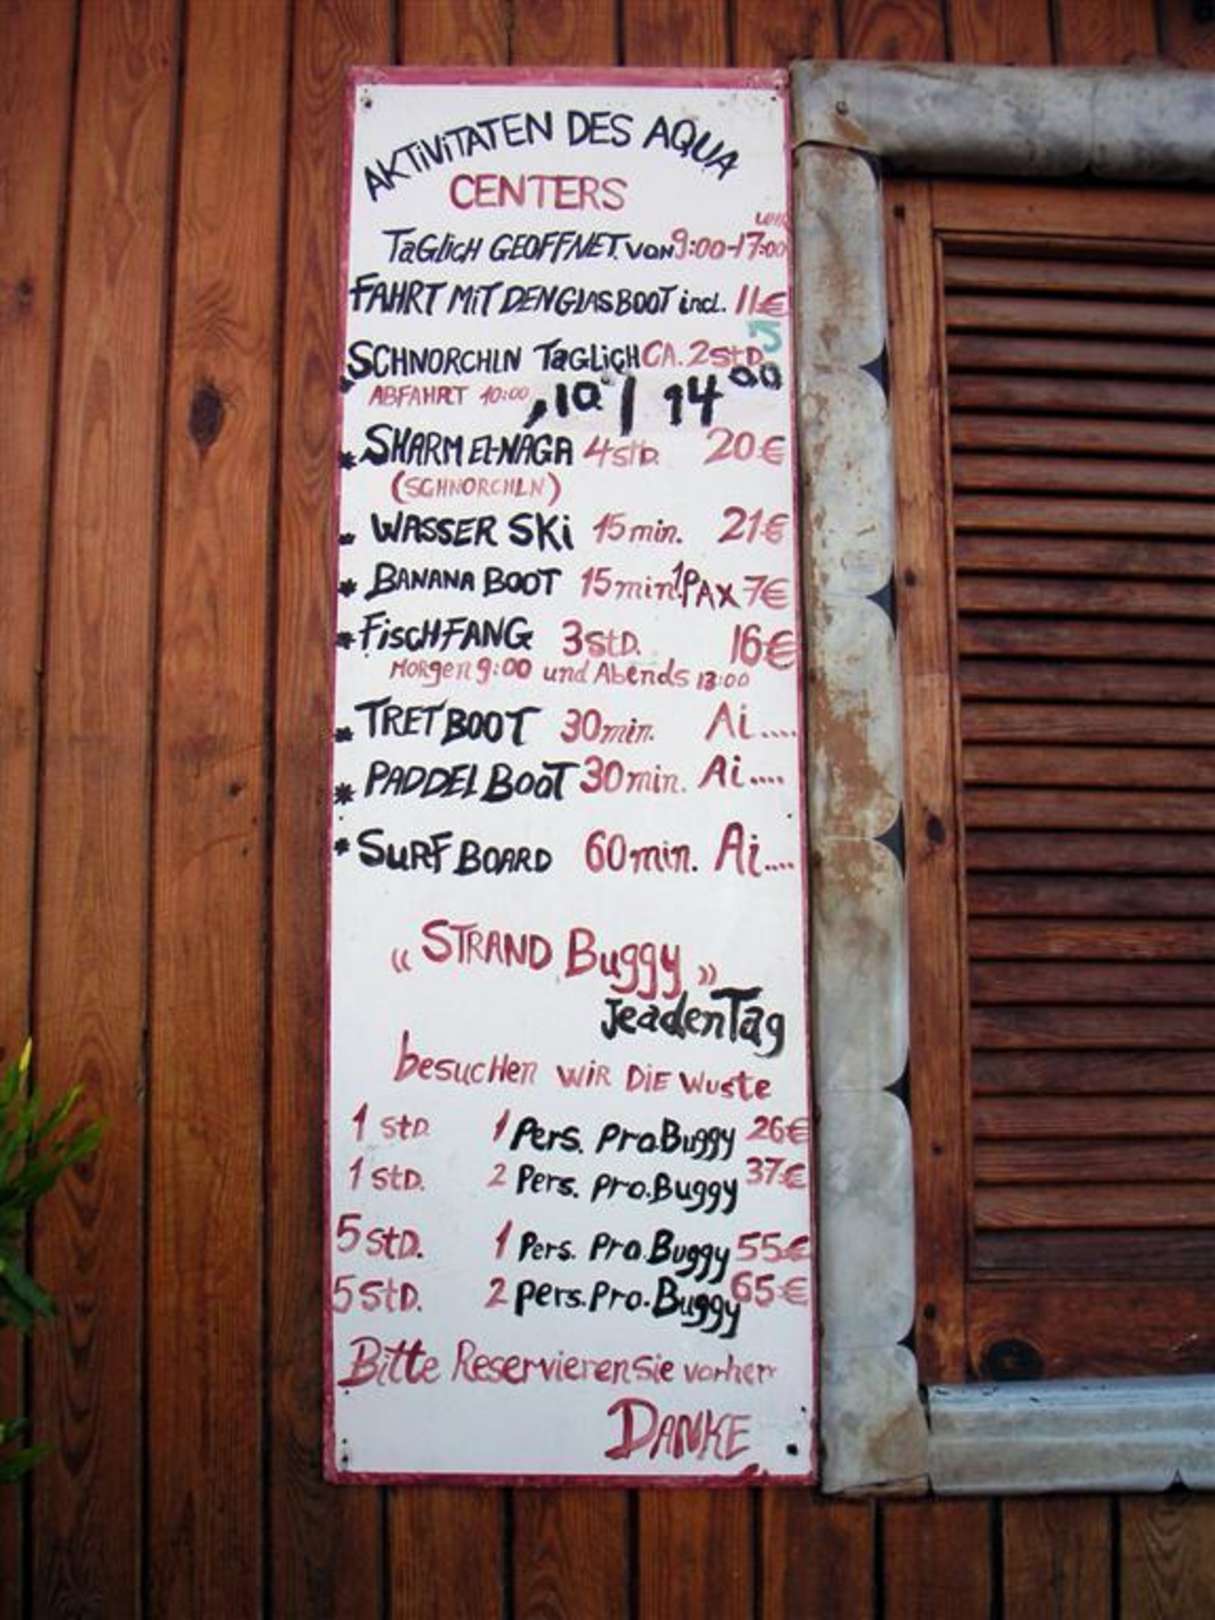 AKTiViTATEN DES AQUA
CENTERS
TaGLicH GEOFFNET. VON 9:00-17:00 UHR
FAHRT MiT DEN GLASBOOT incl. 11€
SCHNORCHLN TaGLiCH CA. 2 StD.
ABFAHRT 10:00, 10 / 14 00
* SHARM EL-NAGA 4 StD. 20€
(SCHNORCHLN)
* WASSER SKi 15 min. 21€
* BANANA BOOT 15 min. 1PAX 7€
* FiscHFANG 3 StD. 16€
MORgen 9:00 und Abends 13:00
* TRETBOOT 30 min. Ai....
* PADDELBOOT 30 min. Ai....
* SURF BOARD 60 min. Ai....
„ STRAND Buggy ”
JeadenTag
besucHen WiR DiE Wuste
1 StD. 1 Pers. Pro.Buggy 26€
1 StD. 2 Pers. Pro.Buggy 37€
5 StD. 1 Pers. Pro.Buggy 55€
5 StD. 2 Pers. Pro.Buggy 65€
Bitte Reservieren Sie vorherr
DANKE